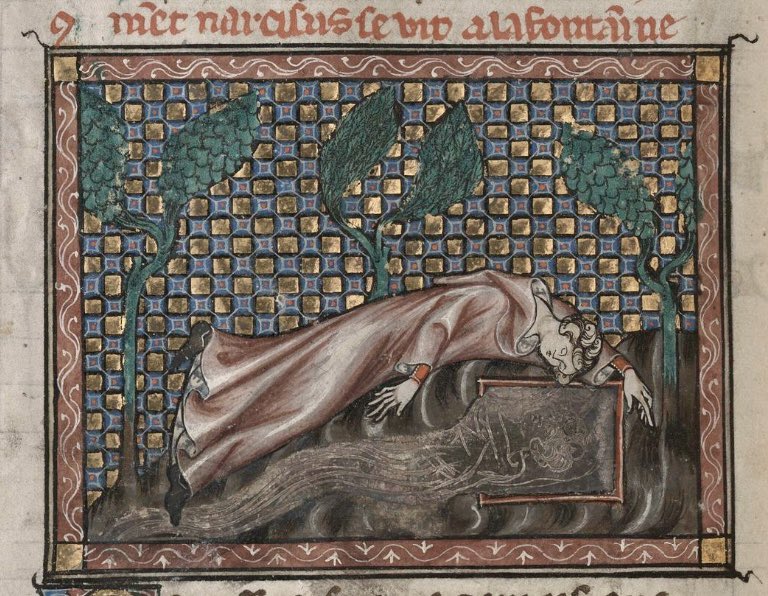 ꝯ mēt narcisus se vit a la fontaīne